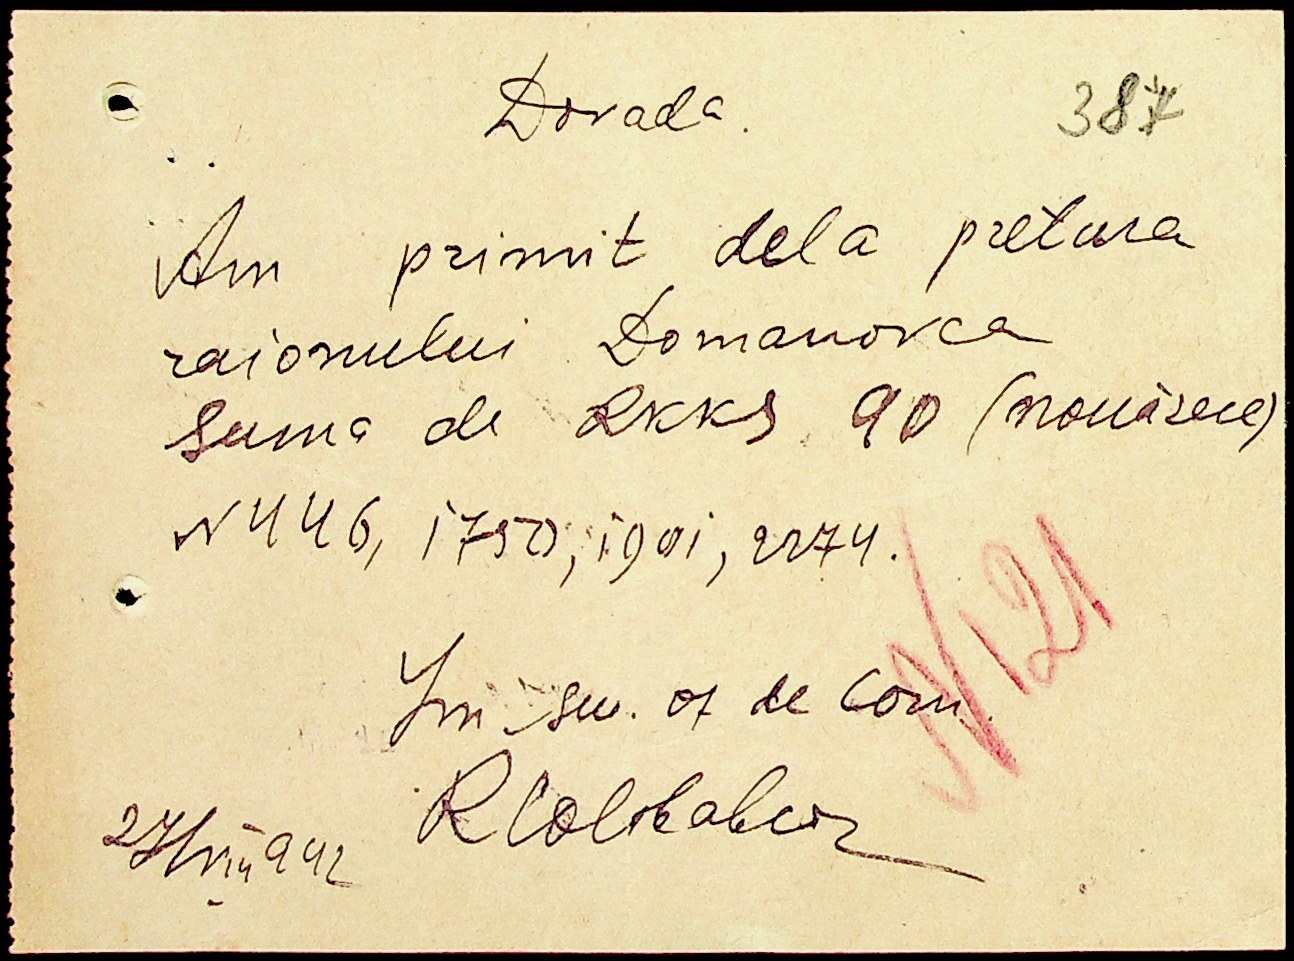 Dovada.
387
Am primit dela pretura
raionului Domanovca
suma de RKKS 90 (nouăzeci)
N 446, 1750, 1901, 2274.
N 121
of de Com.
27/VIII 942